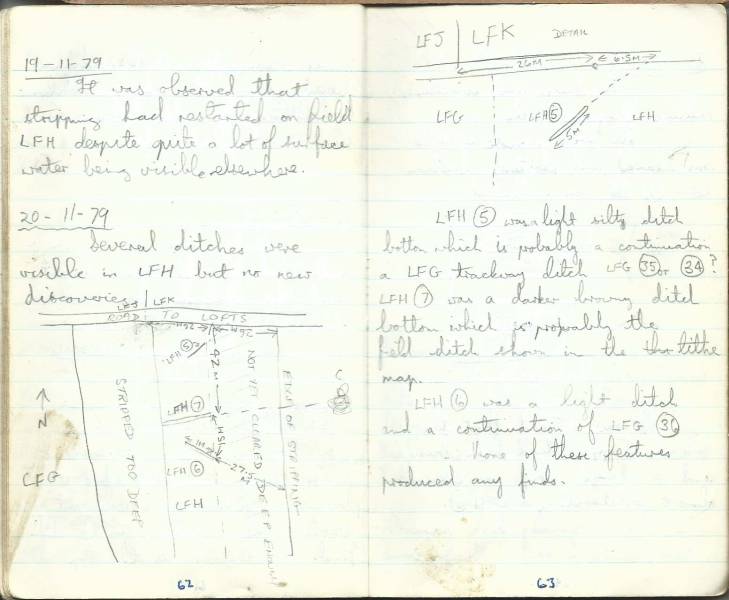 19-11-79
It was observed that
stripping had restarted on field
LFH despite quite a lot of surface
water being visible elsewhere.
20-11-79
Several ditches were
visible in LFH but no new
discoveries.
LFJ | LFK
ROAD TO LOFTS
26M
26M
LFH 5
42M
LFH 7
15M
27.5
M
LFH 6
LFH
STRIPPED TOO DEEP
NOT YET CLEARED DEEP ENOUGH
EDGE OF STRIPPING
N
LFG
62
LFJ | LFK DETAIL
26M
6.5M
LFG
LFH 5
5M
LFH
LFH 5 was a light silty ditch
bottom which is probably a continuation
a LFG trackway ditch LFG 35 or 34?
LFH 7 was a darker browny ditch
bottom which is probably the
field ditch shown in the tithe
map.
LFH 6 was a light ditch
and a continuation of LFG 36
None of these features
produced any finds.
63